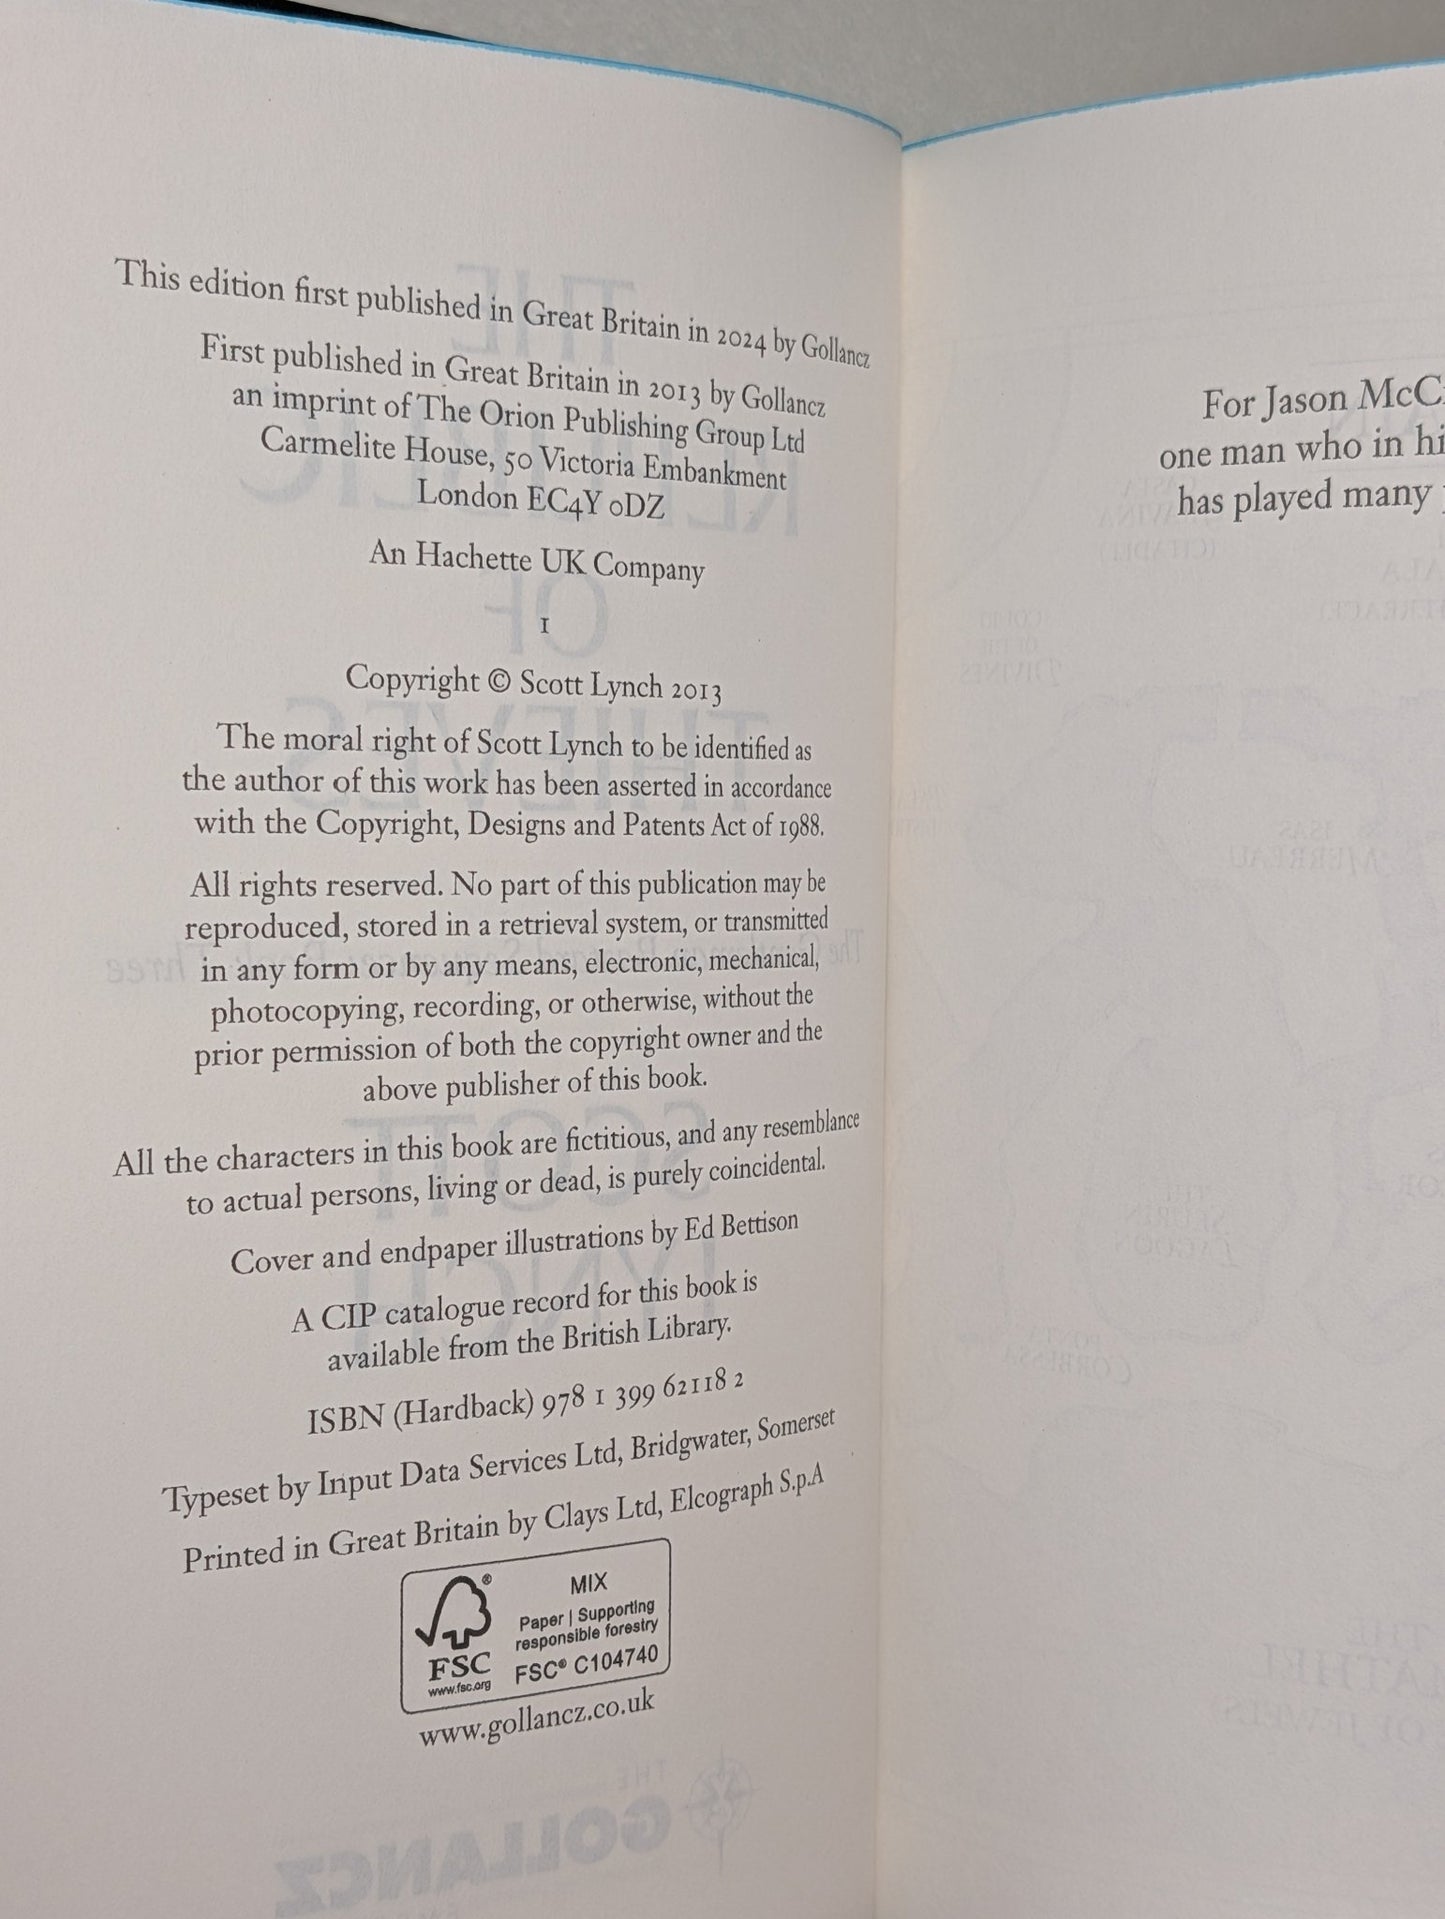 This edition first published in Great Britain in 2024 by Gollancz
First published in Great Britain in 2013 by Gollancz
an imprint of The Orion Publishing Group Ltd
Carmelite House, 50 Victoria Embankment
London EC4Y 0DZ
An Hachette UK Company
1
Copyright © Scott Lynch 2013
The moral right of Scott Lynch to be identified as
the author of this work has been asserted in accordance
with the Copyright, Designs and Patents Act of 1988.
All rights reserved. No part of this publication may be
reproduced, stored in a retrieval system, or transmitted
in any form or by any means, electronic, mechanical,
photocopying, recording, or otherwise, without the
prior permission of both the copyright owner and the
above publisher of this book.
All the characters in this book are fictitious, and any resemblance
to actual persons, living or dead, is purely coincidental.
Cover and endpaper illustrations by Ed Bettison
A CIP catalogue record for this book is
available from the British Library.
ISBN (Hardback) 978 1 399 62118 2
Typeset by Input Data Services Ltd, Bridgwater, Somerset
Printed in Great Britain by Clays Ltd, Elcograph S.p.A
MIX
Paper | Supporting
responsible forestry
FSC® C104740
FSC
www.fsc.org
www.gollancz.co.uk
For Jason
one man who in
has played many